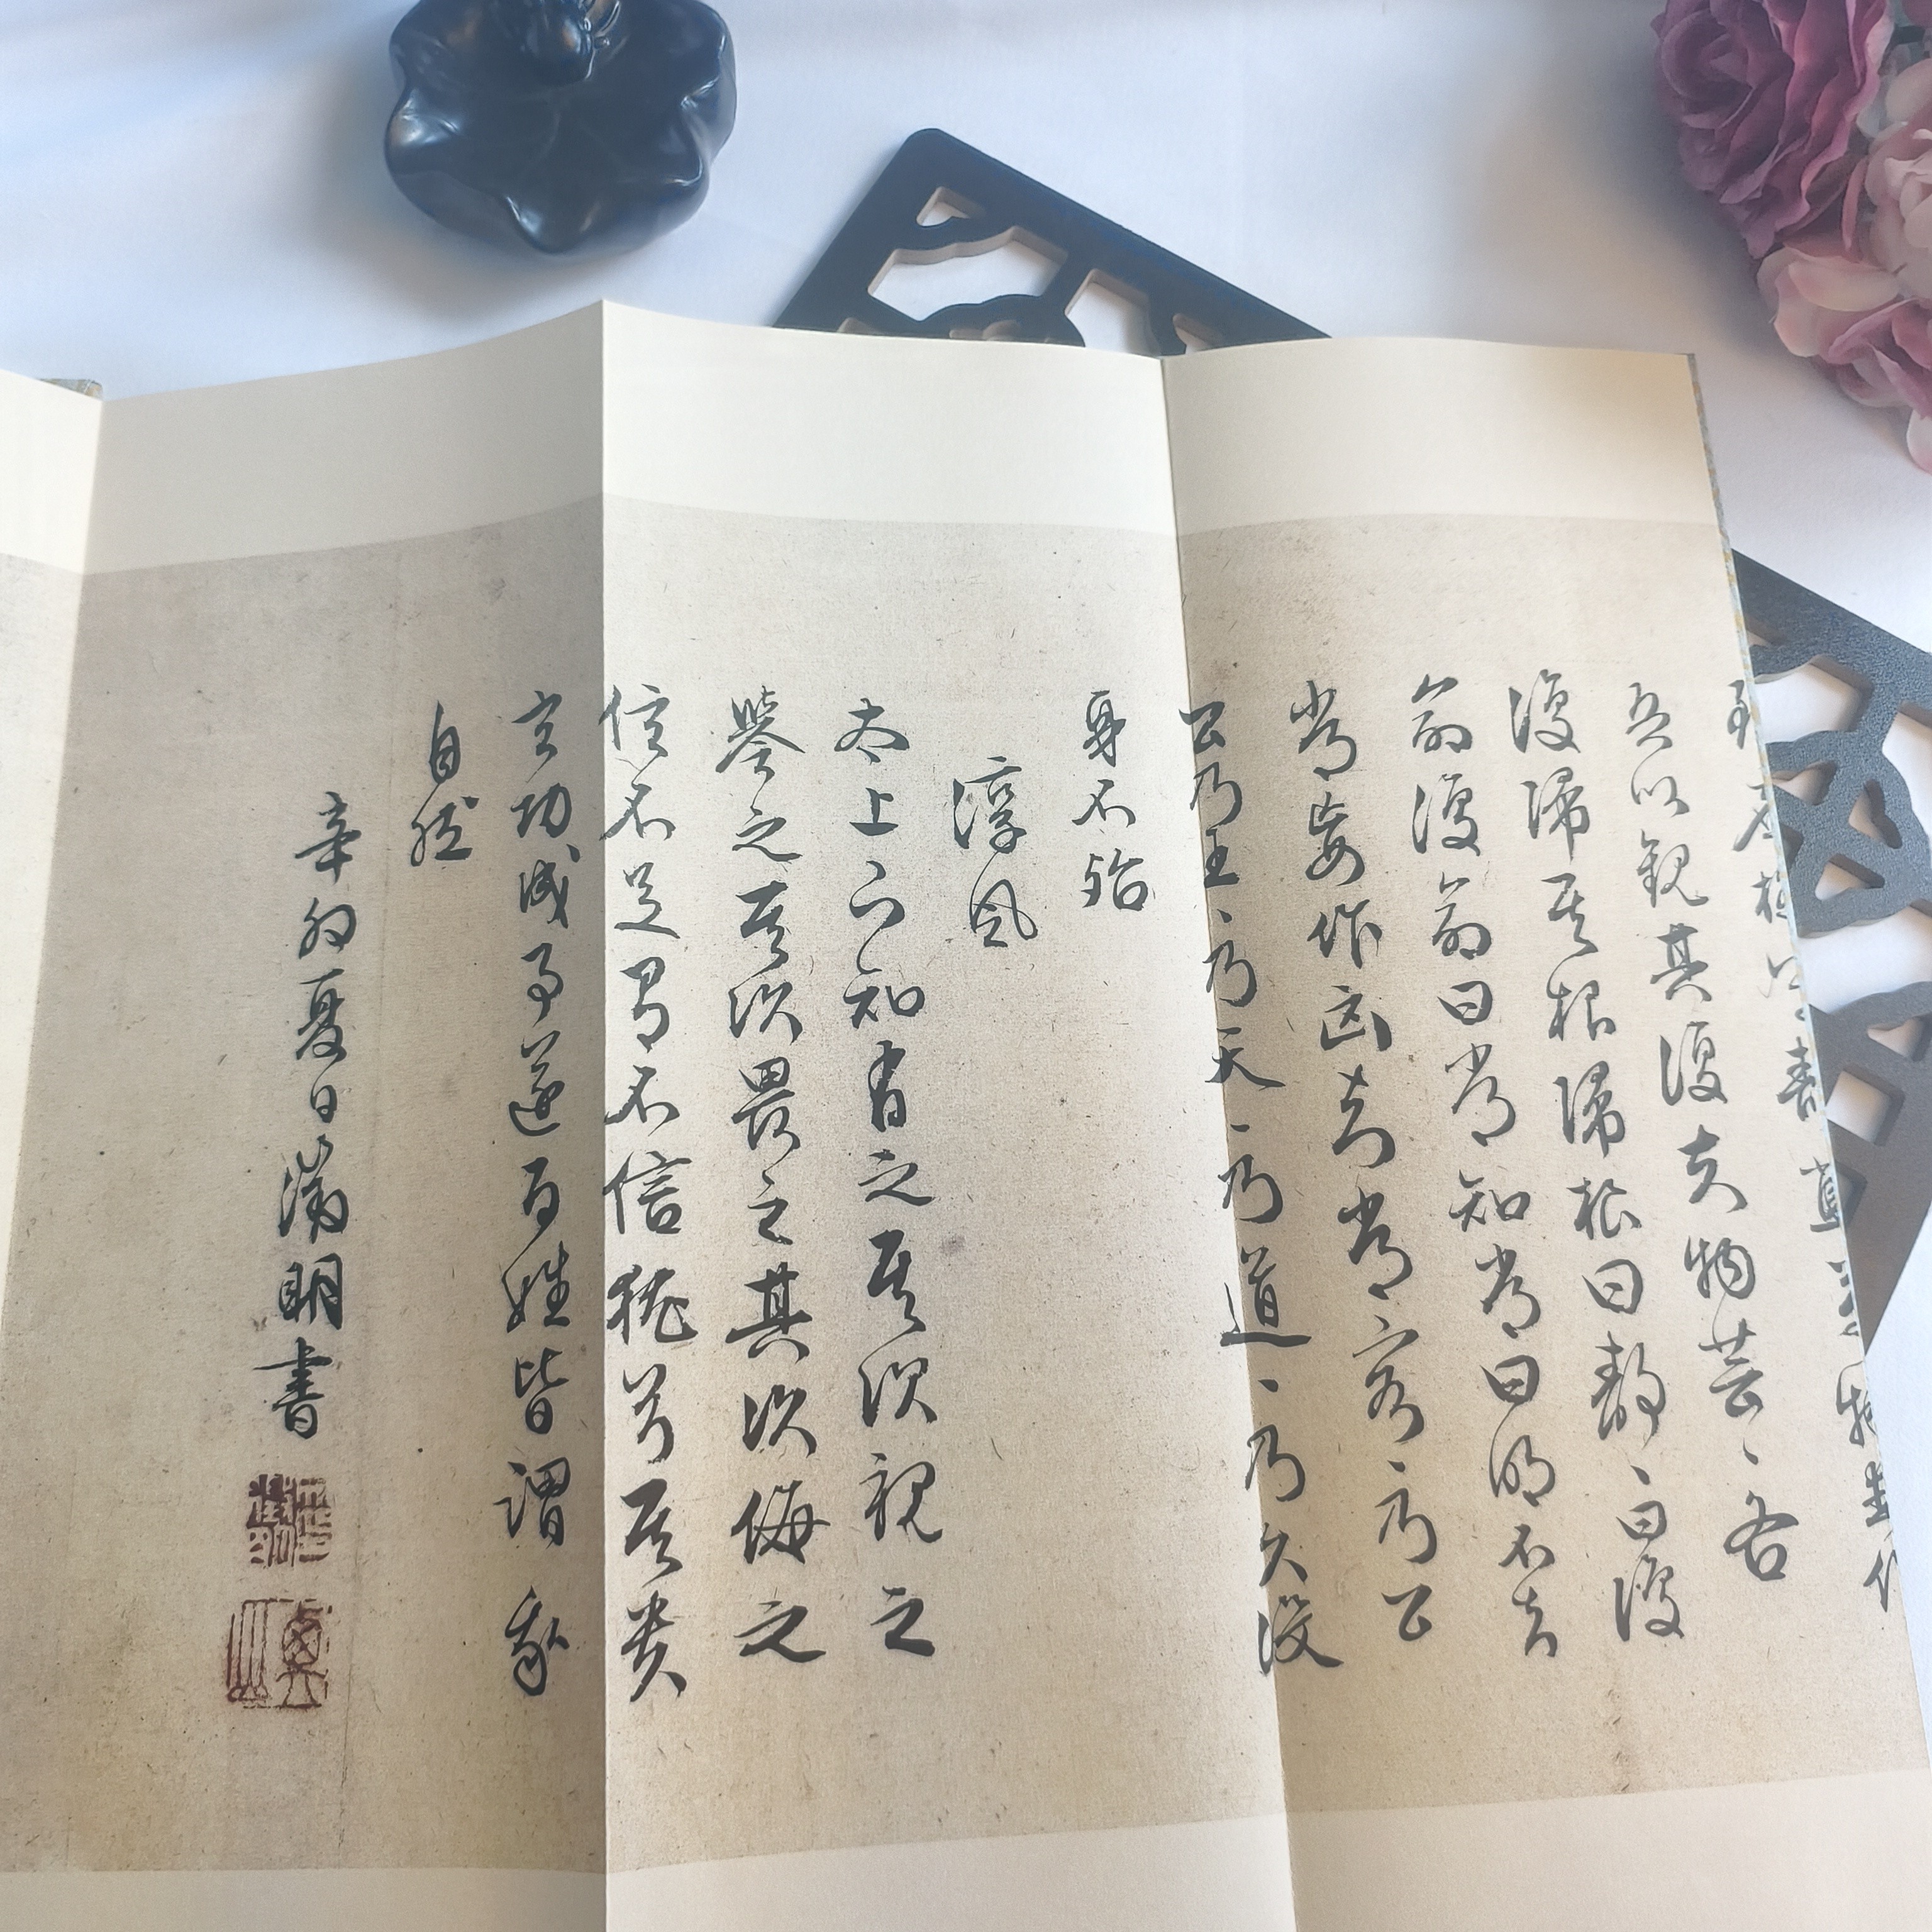 吾以觀其復夫物芸、各
復歸其根歸根曰靜、曰復
命復命曰常知常曰明不知
常妄作凶知常容、乃公
公乃王、乃天、乃道、乃久沒
身不殆
淳風
太上下知有之其次親之
譽之其次畏之其次侮之
信不足焉不信猶兮其貴
言功成事遂百姓皆謂我
自然
辛卯夏日徵明書